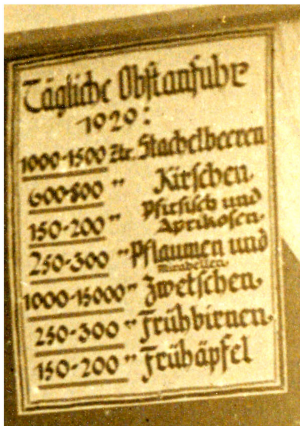 Tägliche Obstanfuhr
1929:
1000-1500 Ztr. Stachelbeeren
600-800 " Kirschen
150-200 " Pfirsich und
Aprikosen
250-300 " Pflaumen und
Mirabellen
1000-15000 " Zwetschen
250-300 " Frühbirnen
150-200 " Frühäpfel